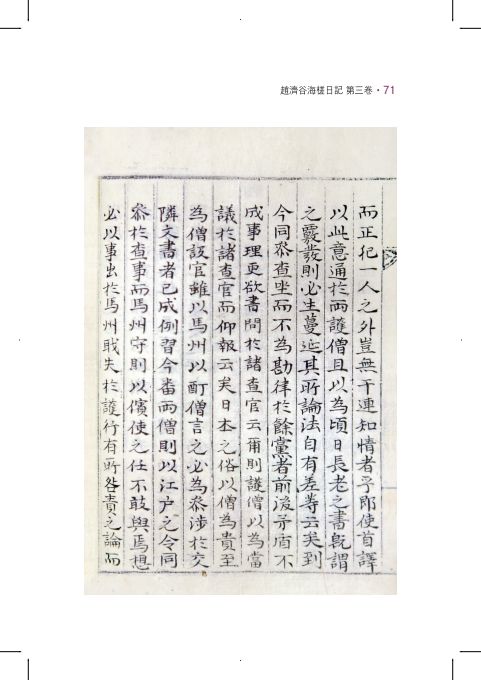 趙濟谷海槎日記 第三卷 • 71
而正犯一人之外豈無干連知情者乎即使首譯
以此意通於兩護僧且以為頃日長老之書旣謂
之覈我則必生蔓延其所論法自有差等云矣到
今同叅查坐而不為勘律於餘黨者前後矛盾不
成事理更欲書問於諸查官云爾則護僧以為當
議於諸查官而仰報云矣日本之俗以僧為貴至
為僧設官雖以馬州以酊僧言之必為叅涉於交
隣文書者已成例習今番兩僧則以江户之令同
叅於查事而馬州守則以儐使之任不敢與焉想
必以事出於馬州戢失於護行有所咎責之論而